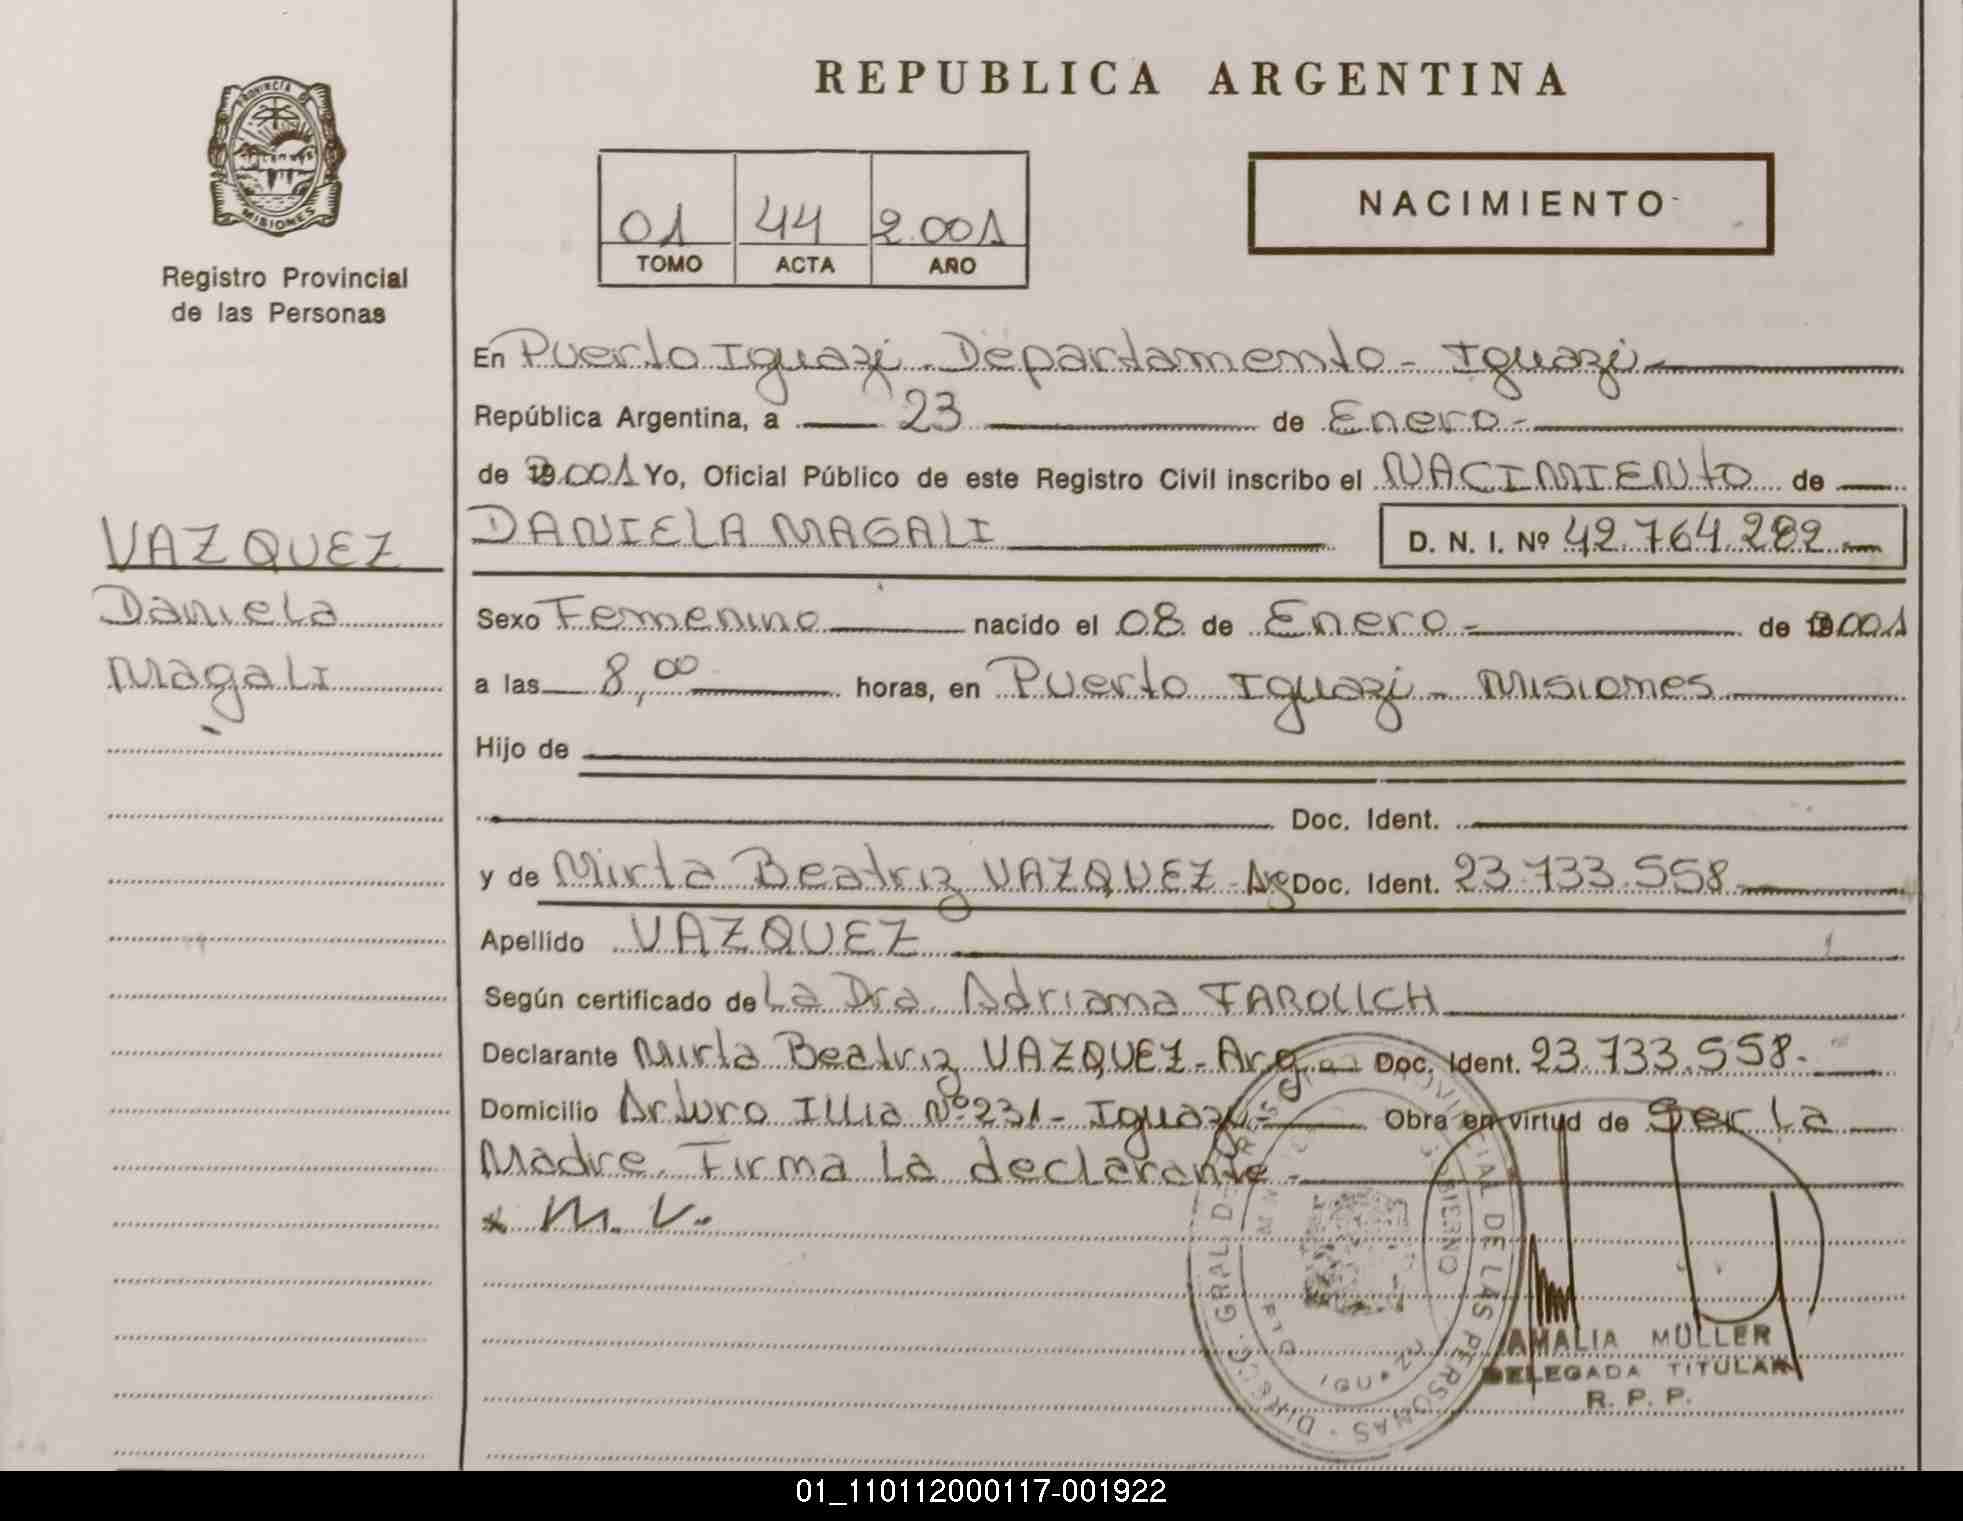 REPUBLICA ARGENTINA
PROVINCIA DE
MISIONES
Registro Provincial
de las Personas
01 44 2.001
TOMO ACTA AÑO
NACIMIENTO
En Puerto Iguazú - Departamento - Iguazú -
República Argentina, a 23 de Enero -
de 2.001 Yo, Oficial Público de este Registro Civil inscribo el NACIMIENTO de
VAZQUEZ
Daniela
Magali
DANIELA MAGALI D. N. I. Nº 42.764.282.-
Sexo Femenino nacido el 08 de Enero - de 2001
a las 8,00 horas, en Puerto Iguazú - Misiones
Hijo de
Doc. Ident.
y de Mirta Beatriz VAZQUEZ - Arg Doc. Ident. 23.733.558
Apellido VAZQUEZ
Según certificado de La Dra. Adriana FAROLICH
Declarante Mirta Beatriz VAZQUEZ - Arg. Doc. Ident. 23.733.558.
Domicilio Arturo Illia Nº 231 - Iguazú - Obra en virtud de Ser La
Madre. Firma La declarante -
x M. V.
DIRECC. GRAL. DEL REGISTRO PROVINCIAL DE LAS PERSONAS
GOBIERNO
IGUAZU
AMALIA MÜLLER
DELEGADA TITULAR
R. P. P.
01_110112000117-001922